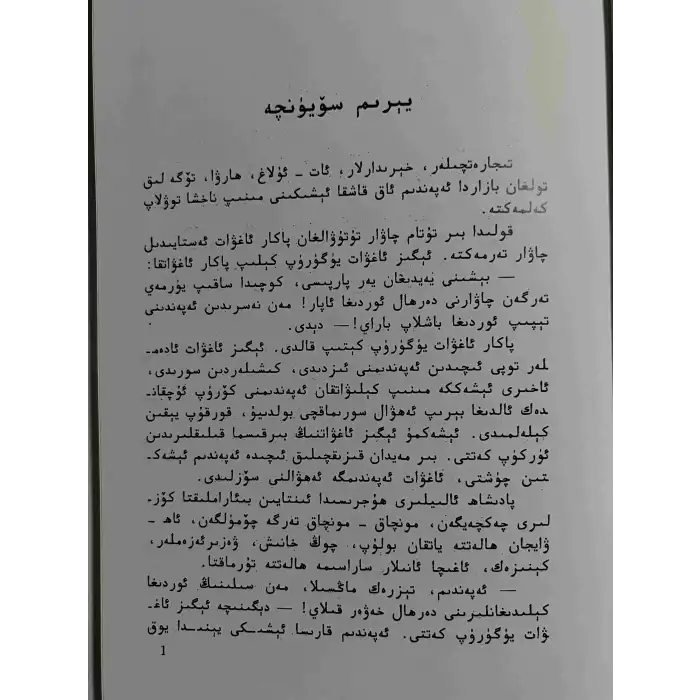 يېرىم سۆيۈنچە
تىجارەتچىلەر، خېرىدارلار، ئات ـ ئۇلاغ، ھارۋا، تۆگە لىق
تولغان بازاردا ئەپەندىم ئاق قاشقا ئېشىكىنى مىنىپ ناخشا توۋلاپ
كەلمەكتە.
قولىدا بىر تۇتام چاۋار تۇتۇۋالغان پاكار ئاغۋات ئەستايىدىل
چاۋار تەرمەكتە. ئېگىز ئاغۋات يۈگۈرۈپ كېلىپ پاكار ئاغۋاتقا:
— بېشىنى يەيدىغان يەر پارىپسى، كوچىدا ساقىپ يۈرمەي
تەرگەن چاۋارنى دەرھال ئوردىغا ئاپار! مەن نەسرىدىن ئەپەندىنى
تېپىپ ئوردىغا باشلاپ باراي! — دېدى.
پاكار ئاغۋات يۈگۈرۈپ كېتىپ قالدى. ئېگىز ئاغۋات ئادەمـ
لەر توپى ئىچىدىن ئەپەندىمنى ئىزدىدى، كىشىلەردىن سورىدى،
ئاخىرى ئېشەككە مىنىپ كېلىۋاتقان ئەپەندىمنى كۆرۈپ ئۇچقانـ
دەك ئالدىغا بېرىپ ئەھۋال سورىماقچى بولدىيۇ، قورقۇپ يېقىن
كېلەلمىدى. ئېشەكمۇ ئېگىز ئاغۋاتنىڭ بىرقىسما قىلىقلىرىدىن
ئۈركۈپ كەتتى. بىر مەيدان قىزىقچىلىق ئىچىدە ئەپەندىم ئېشەكـ
تىن چۈشتى، ئاغۋات ئەپەندىمگە ئەھۋالنى سۆزلىدى.
پادىشاھ ئالىيلىرى ھۇجرىسىدا ئىنتايىن بىئاراملىقتا كۆزـ
لىرى چەكچەيگەن، مونچاق ـ مونچاق تەرگە چۆمۈلگەن، ئاھـ
ۋايجان ھالەتتە ياتقان بولۇپ، چوڭ خانىش، ۋەزىرئەزەملەر،
كېنىزەك، ئاغىچا ئانىلار ساراسىمە ھالەتتە تۇرماقتا.
— ئەپەندىم، تېزرەك ماڭسىلا، مەن سىلىنىڭ ئوردىغا
كېلىدىغانلىرىنى دەرھال خەۋەر قىلاي! — دېگىنىچە ئېگىز ئاغـ
ۋات يۈگۈرۈپ كەتتى. ئەپەندىم قارىسا ئېشىكى يېنىدا يوق
1